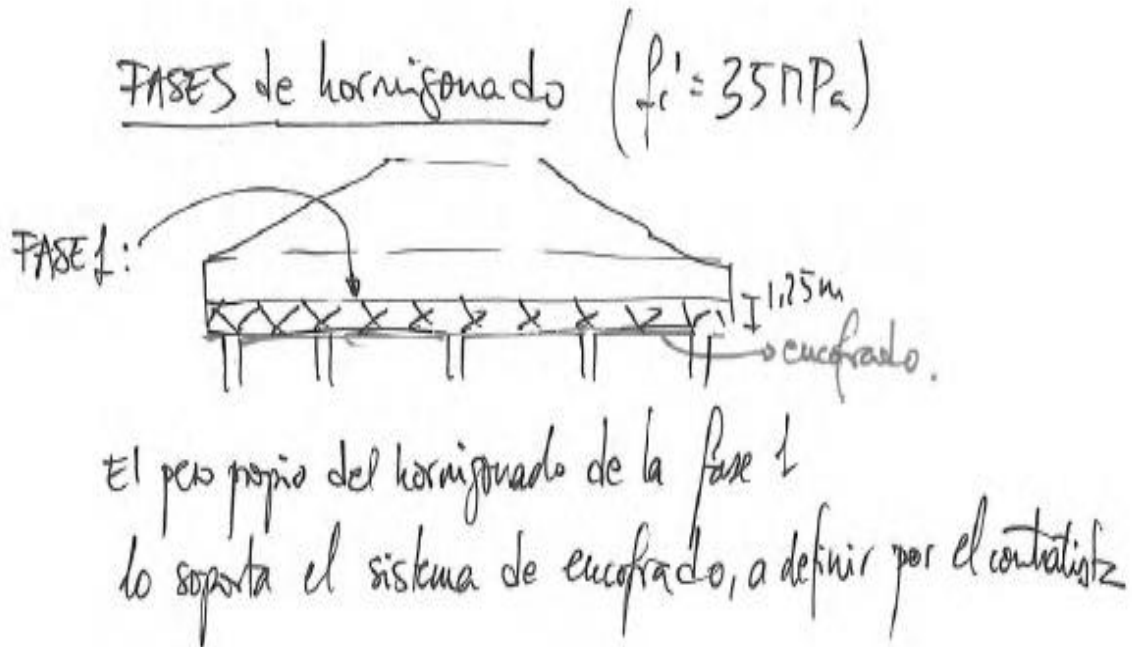 FASES de hormigonado (fc' = 35 MPa)
FASE 1:
1,25m
encofrado.
El peso propio del hormigonado de la fase 1
lo soporta el sistema de encofrado, a definir por el contratista